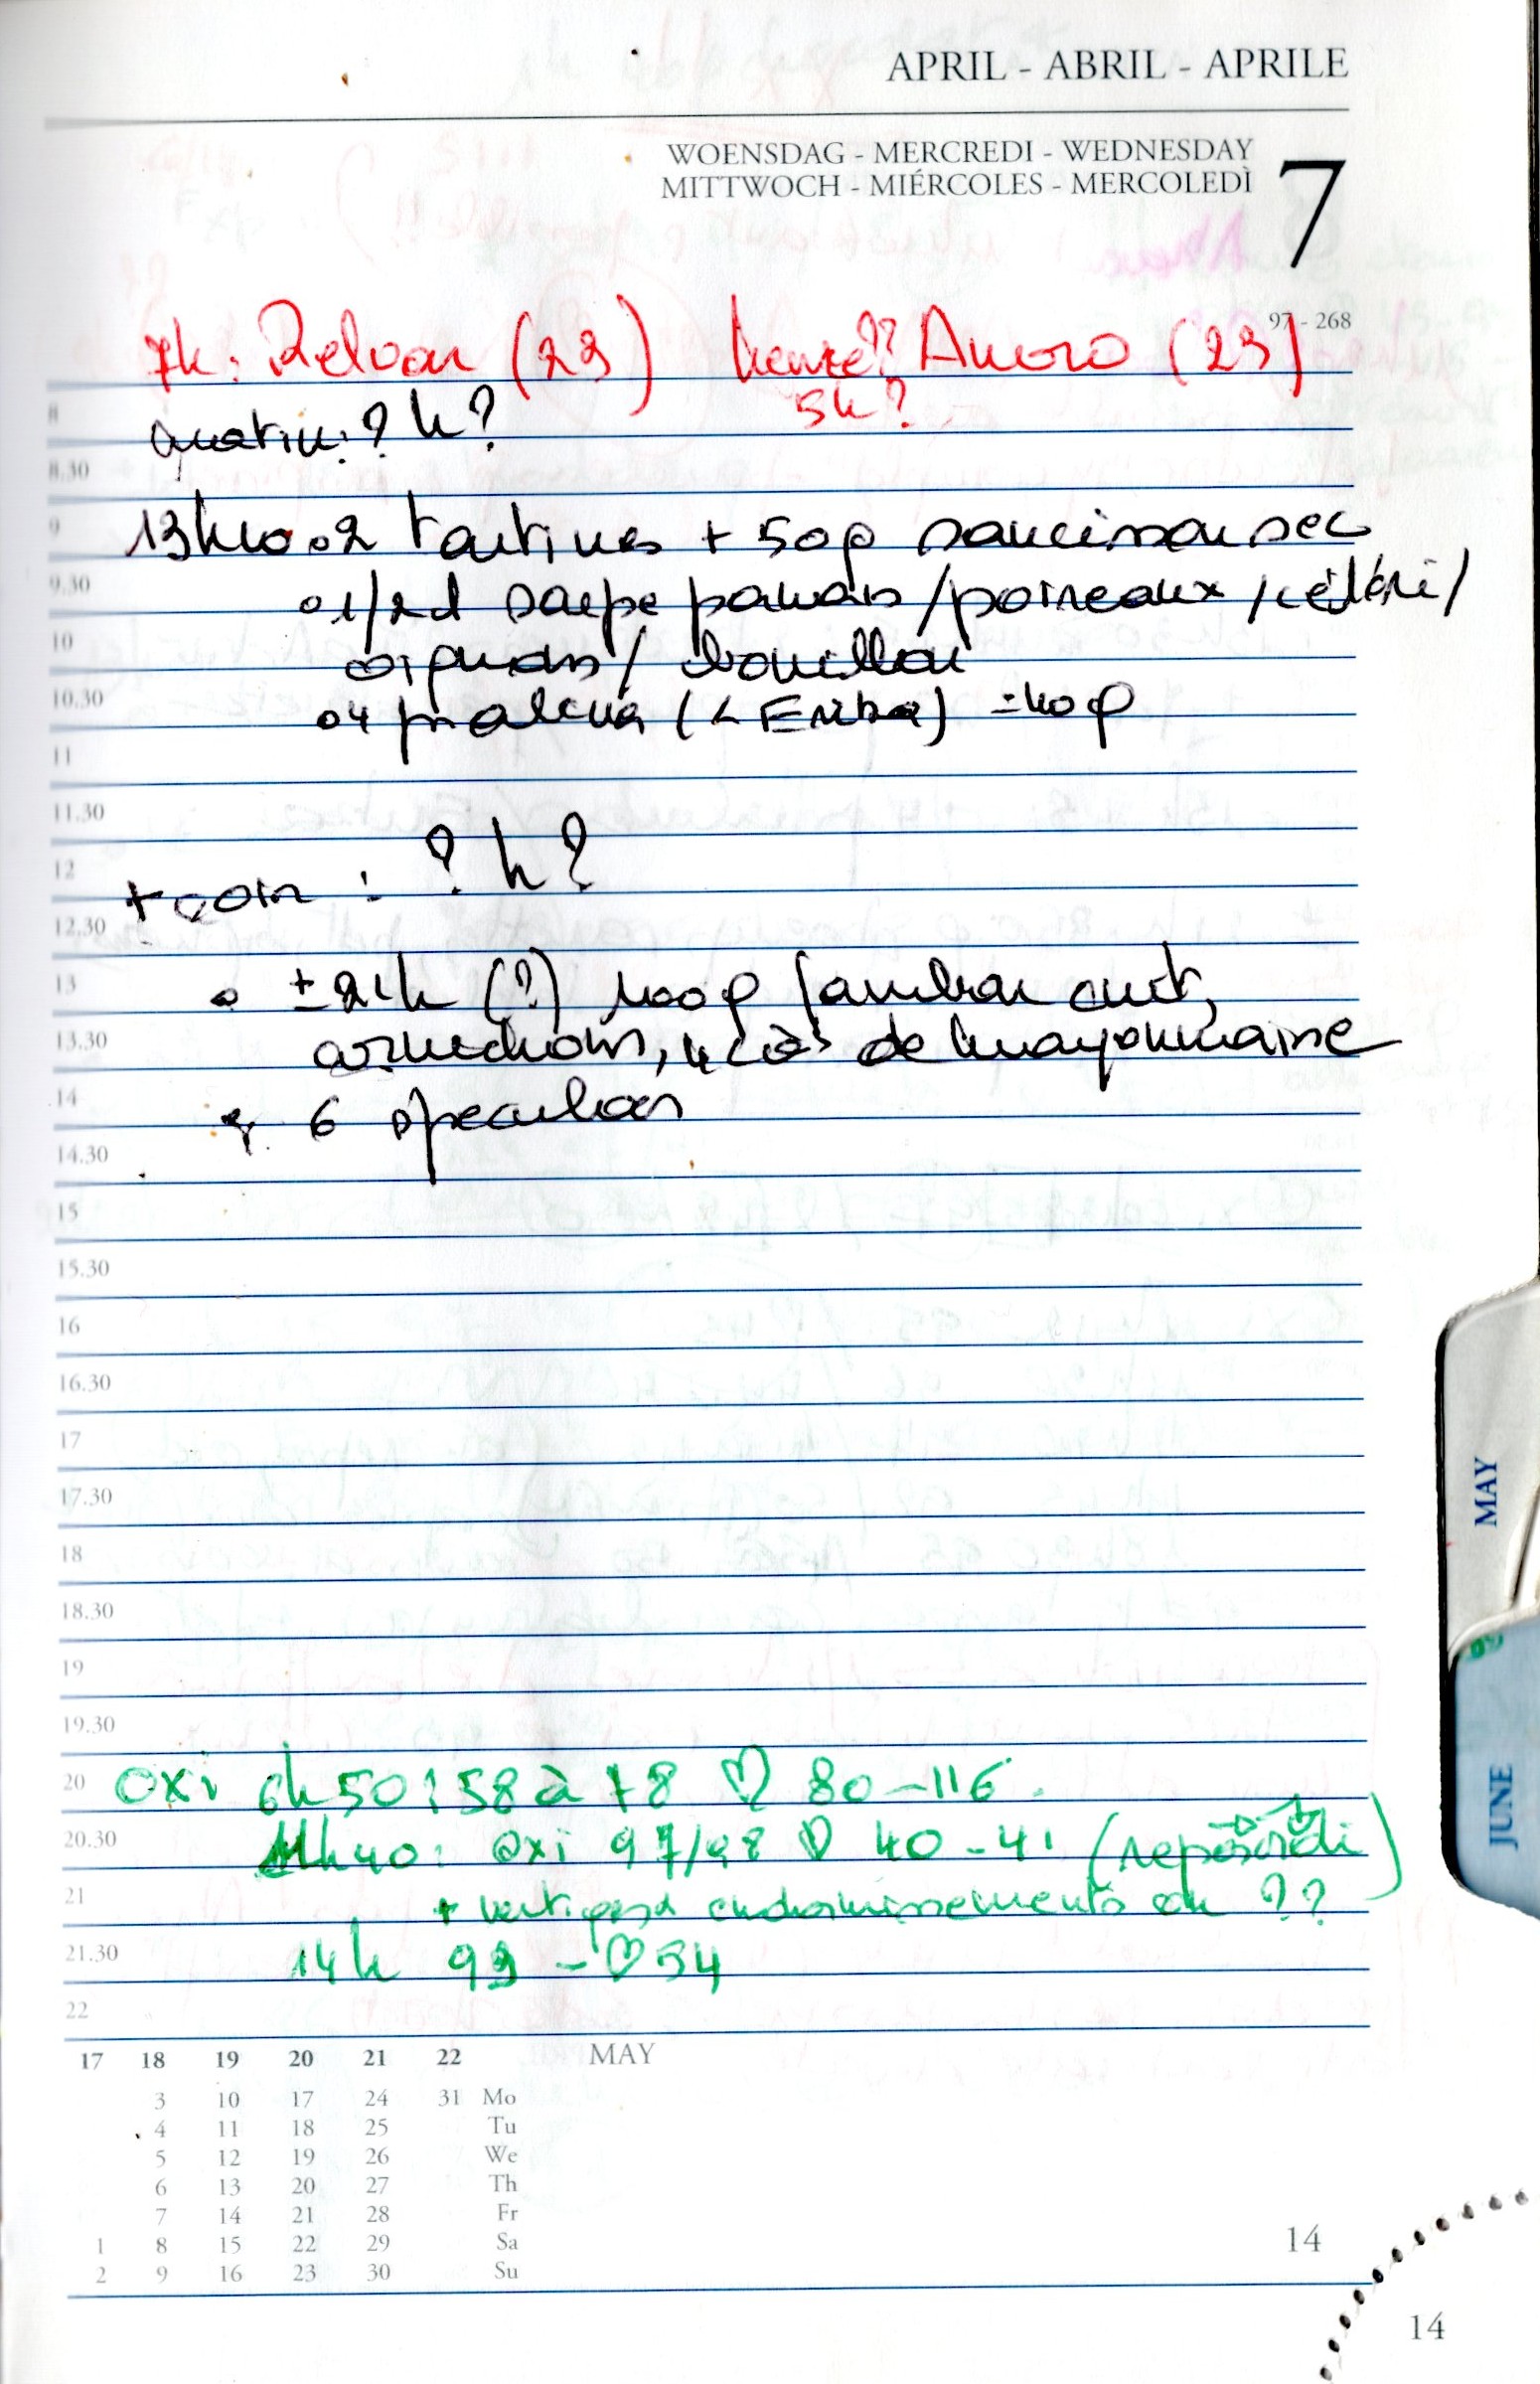 APRIL - ABRIL - APRILE
WOENSDAG - MERCREDI - WEDNESDAY
MITTWOCH - MIÉRCOLES - MERCOLEDÌ
7
97 - 268
7h: Relvar (23) Anoro (23)
5h?
? h?
8
8.30
13h40 2 tartines + 50g saucisson sec
9
9.30
1/2l panais / poireaux / céléri /
10
oignons / bouillon
10.30
4 (< = 40g
11
11.30
12
+ soir : ? h?
12.30
13
± 21h (?) 100g jambon cuit,
13.30
cornichons, 4 càs de mayonnaise
14
6 speculoos
14.30
15
15.30
16
16.30
17
17.30
18
18.30
19
19.30
20
oxi 6h50: 58 à 78 ♡ 80-116
20.30
11h40: oxi 97/98 ♡ 40-41 (
21
+ vertiges endormissements en ??
21.30
14h 99 - ♡ 54
22
17 18 19 20 21 22 MAY
3 10 17 24 31 Mo
4 11 18 25 Tu
5 12 19 26 We
6 13 20 27 Th
7 14 21 28 Fr
1 8 15 22 29 Sa
2 9 16 23 30 Su
14
14
MAY
JUNE